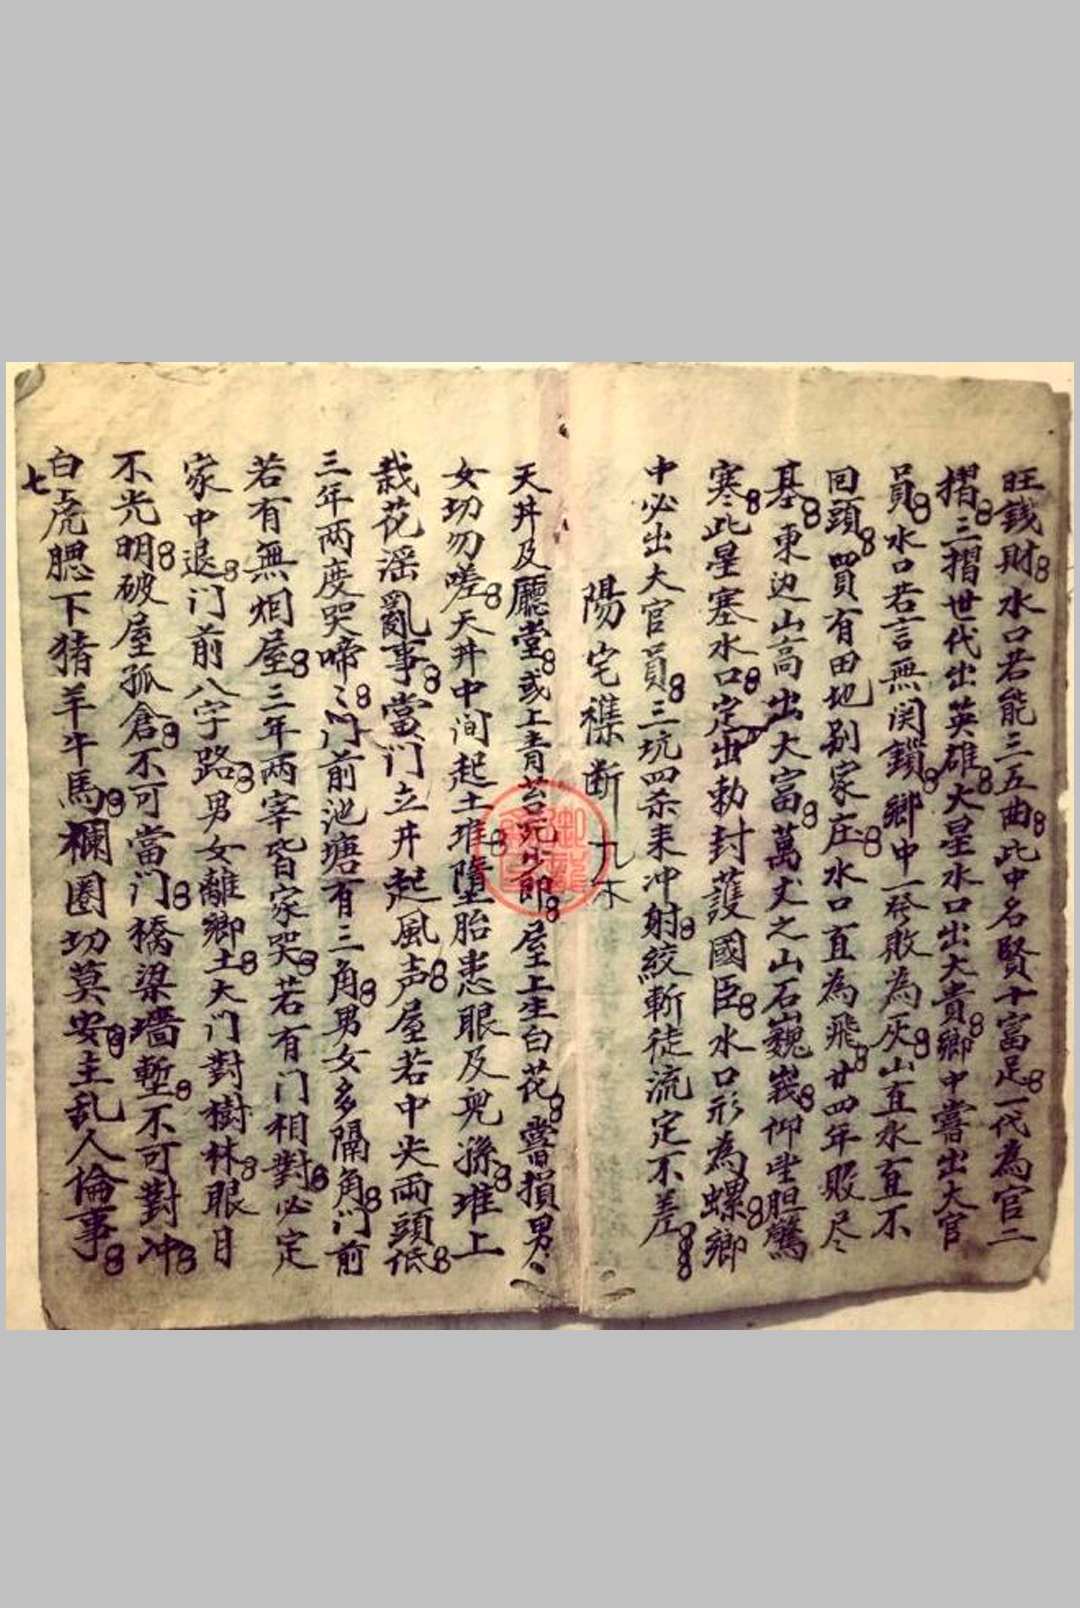 旺錢財水口若能三五曲此中名賢十富足一代為官二
摺三摺世代出英雄大星水口出大貴鄉中嘗出大官
員水口若言無関鎖鄉中一癹敗為灰山直水直不
回頭買有田地别家庄水口直為飛廿四年敗尽
基東边山高出大富萬丈之山石巍峩仰坐胆驚
寒此星塞水口定出勅封護國臣水口形為螺鄉
中必出大官員三坑四杀来冲射絞斬徒流定不差
陽宅襍断 九木
天井及廳堂或上青苔 屋上生白花嘗損男
女切勿嗟天井中间起土堆墮胎患眼及兒孫堆上
栽花滛亂事當门立井起風声屋若中央両頭低
三年两度哭啼〻门前池塘有三角男女多隔角门前
若有無烟屋三年两宰皆家哭若有门相對必定
家中退门前八字路男女離鄉土大门對樹林眼目
不光明破屋孤倉不可當门橋梁墻塹不可對冲
白虎腮下猪羊牛馬欄圈切莫安主乱人倫事
七